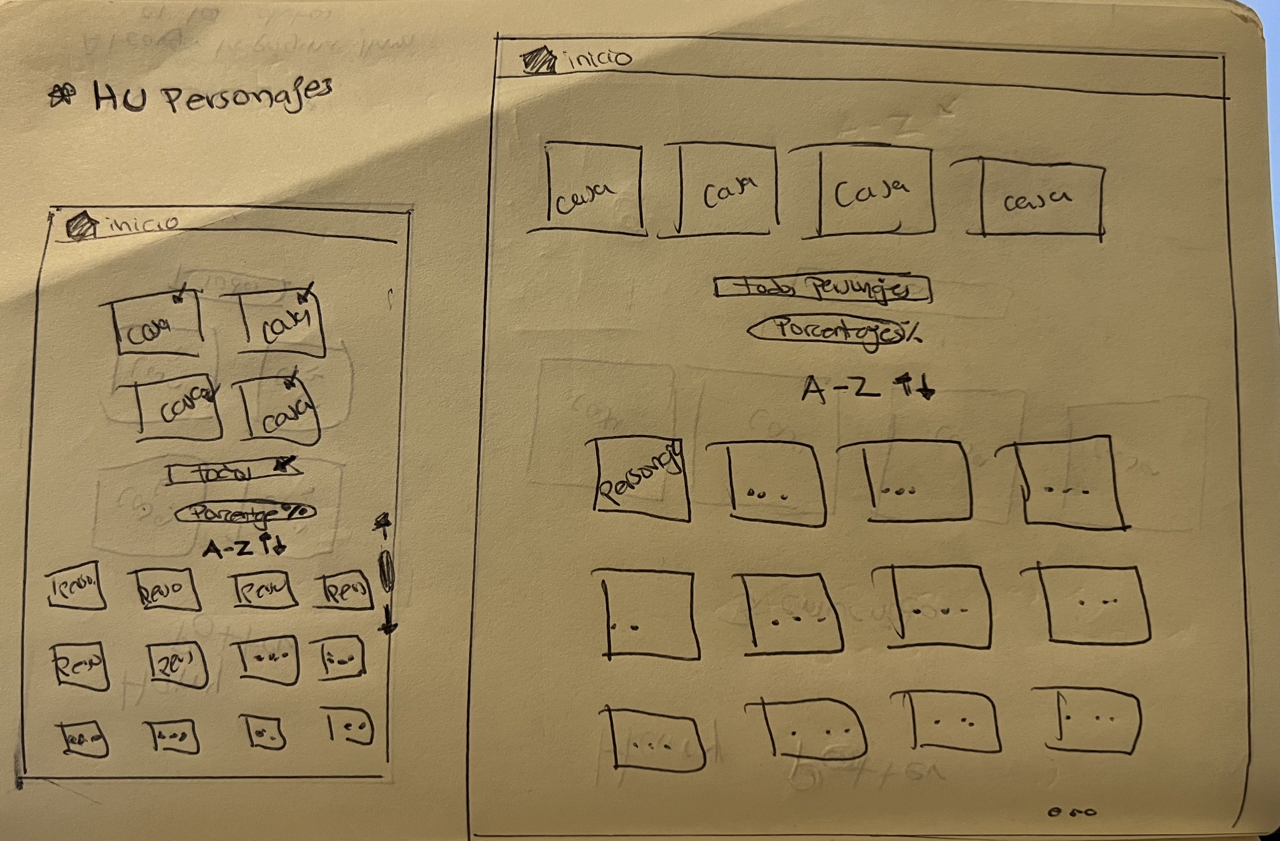 * HU Personajes
inicio
casa
casa
casa
casa
Todos
Porcentaje %
A-Z ↑↓
Perso.
Perso
Perso
Perso
Perso
Pers
...
...
...
...
...
...
inicio
casa
casa
Casa
casa
todos Personajes
Porcentajes %
A-Z ↑↓
Personaje
...
...
...
..
...
...
...
...
...
...
...
...